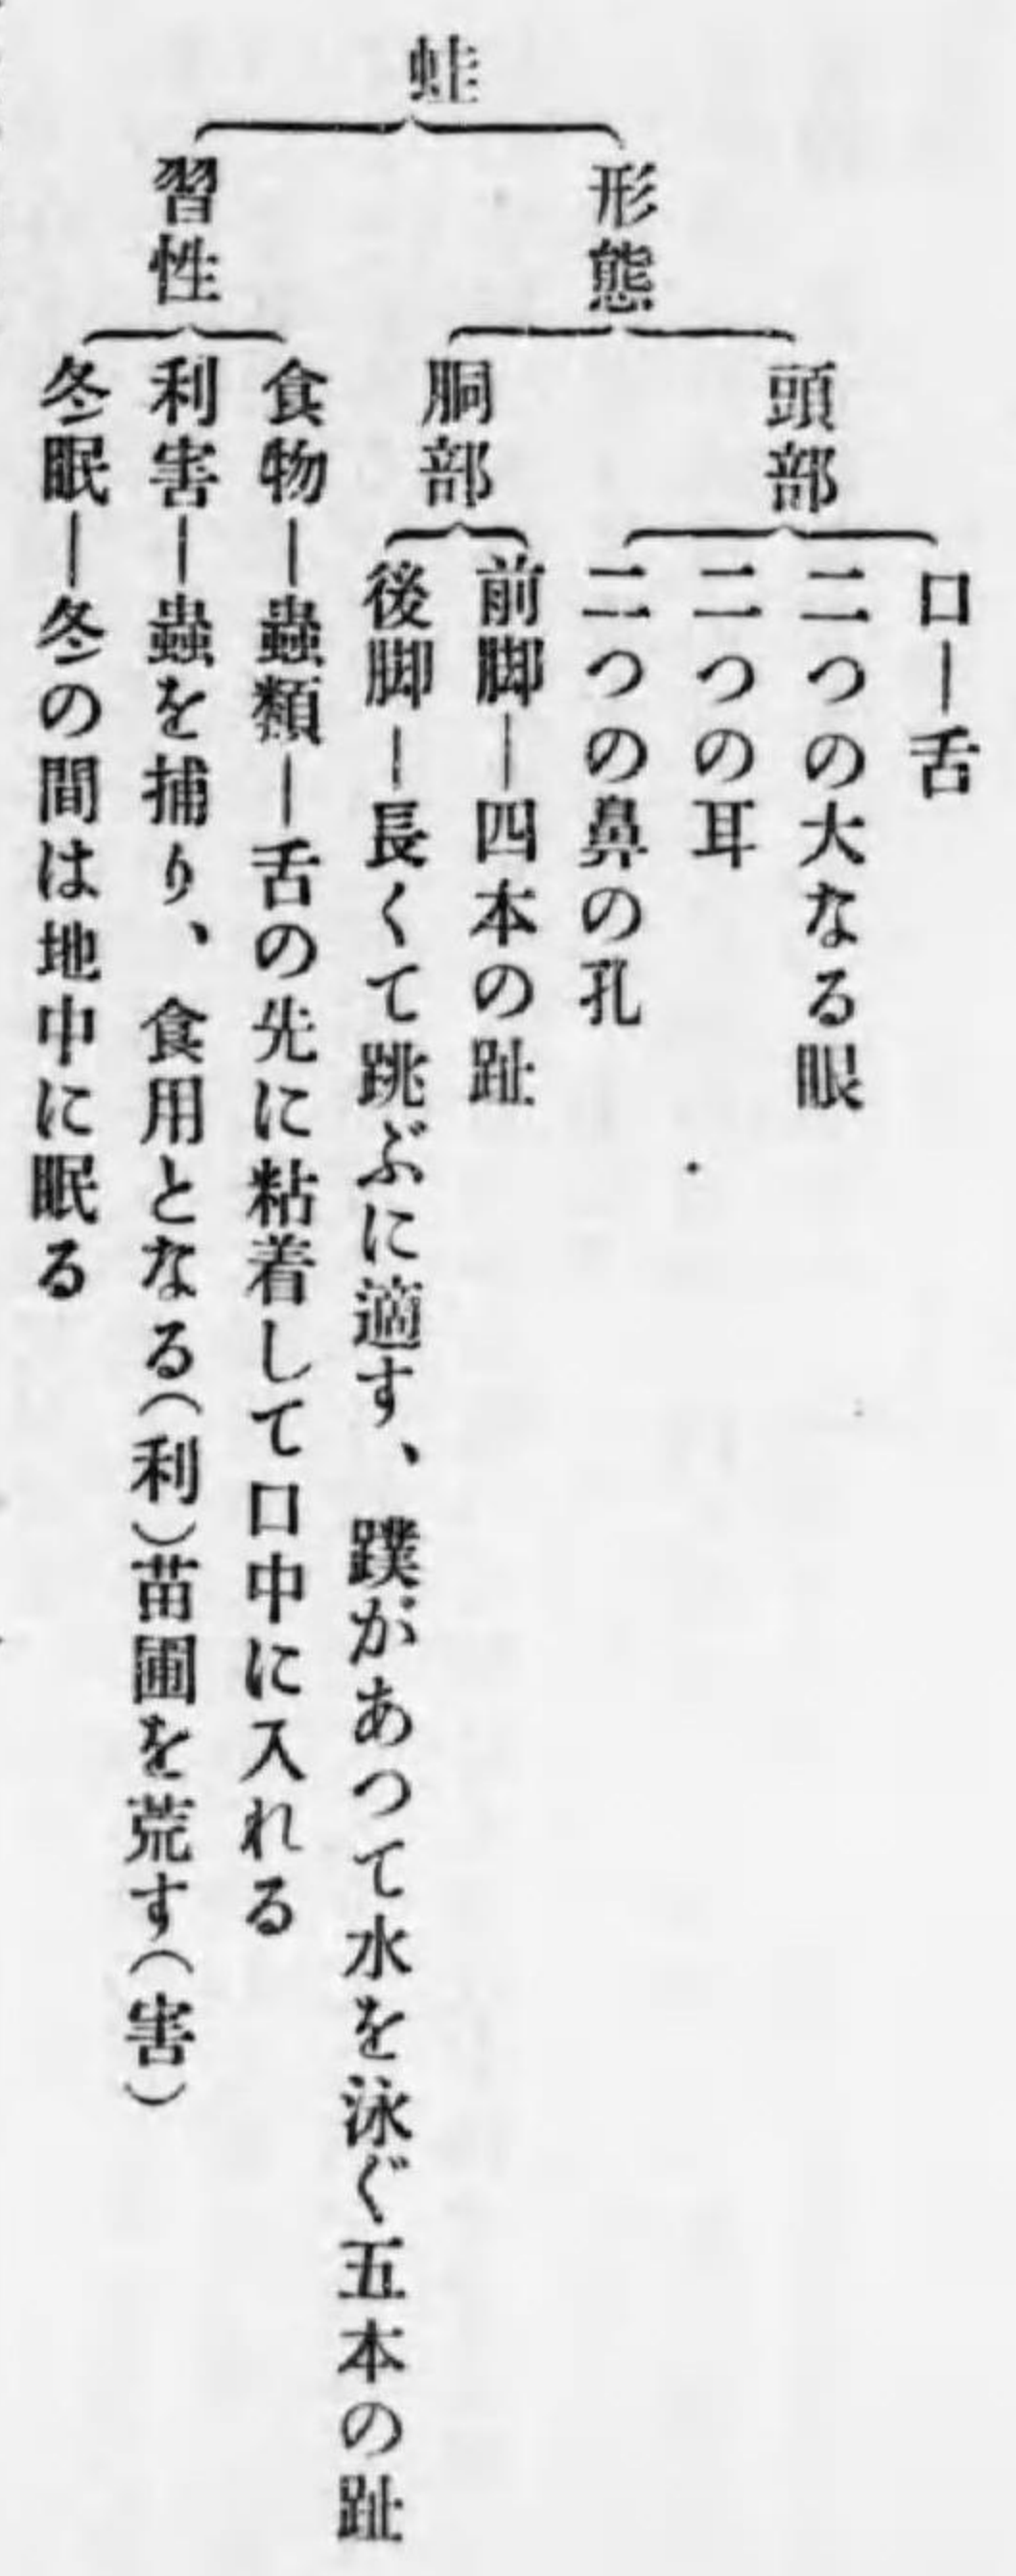 蛙
形態
頭部
口―舌
二つの大なる眼
二つの耳
二つの鼻の孔
胴部
前脚―四本の趾
後脚―長くて跳ぶに適す、蹼があつて水を泳ぐ五本の趾
習性
食物―蟲類―舌の先に粘着して口中に入れる
利害―蟲を捕り、食用となる(利)苗圃を荒す(害)
冬眠―冬の間は地中に眠る